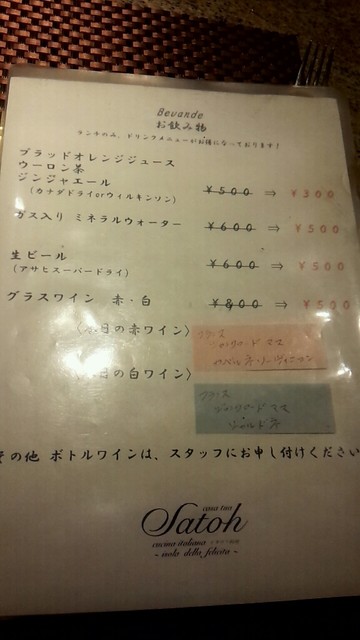 Bevande
お飲み物
ランチのみ、ドリンクメニューがお得になっております!
ブラッドオレンジジュース
ウーロン茶
ジンジャエール
(カナダドライorウィルキンソン) ¥500 ⇒ ¥300
ガス入り ミネラルウォーター ¥600 ⇒ ¥500
生ビール
(アサヒスーパードライ) ¥600 ⇒ ¥500
グラスワイン 赤・白 ¥800 ⇒ ¥500
〈本日の赤ワイン〉
フランス
〈本日の白ワイン〉
フランス
その他 ボトルワインは、スタッフにお申し付けください
casa tuo
Satoh
cucina italiana
~ isola della felicita ~